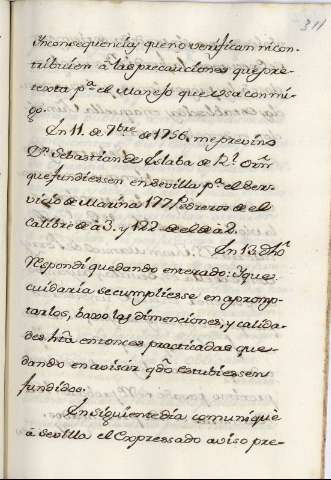 311
Inconsequencias que no verifican ni con-
tribuien à las precauciones que pre-
texta p.ª el Manejo que usa conmi-
go.
En 11. de 7.bre de 1756, me previno
D.n Sebastian de Eslaba de R.l Orñ
que fundiessen en Sevilla p.ª el Ser-
vicio de Marina 177 Pedreros de el
Calibre de à 3. y 122 de el de à 2.
En 13. dho
Respondi quedando enterado: Y que
cuidaria se cumpliesse en apromp-
tarlos, baxo las dimenciones, y calida-
des hta entonces practicadas que-
dando en avisár qdo estubiessen
fundidos.
En siguiente dia comuniquè
à Sevilla el Expressado aviso pre-